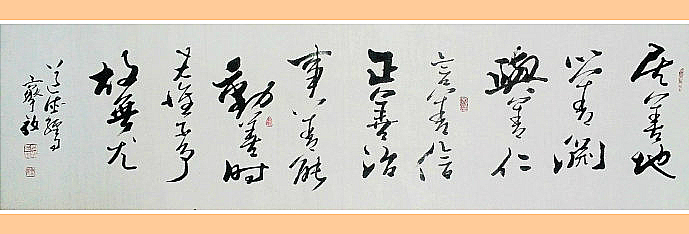 居善地
心善渊
與善仁
言善信
正善治
事善能
動善时
夫唯不爭
故無尤
道德經句